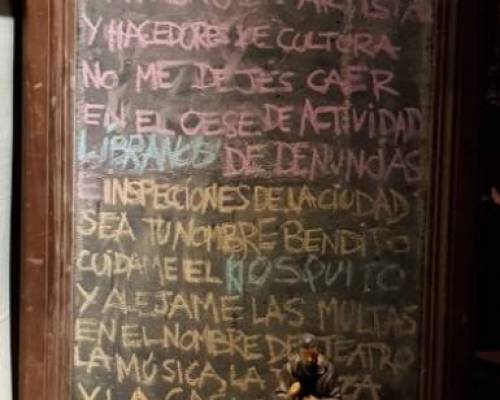 ARTISTA
Y HACEDORES DE CULTURA
NO ME DEJES CAER
EN EL CESE DE ACTIVIDAD
LIBRANOS DE DENUNCIAS
E INSPECCIONES DE LA CIUDAD
SEA TU NOMBRE BENDITO
CUIDAME EL KIOSQUITO
Y ALEJAME LAS MULTAS
EN EL NOMBRE DEL TEATRO
LA MÚSICA, LA
Y LA